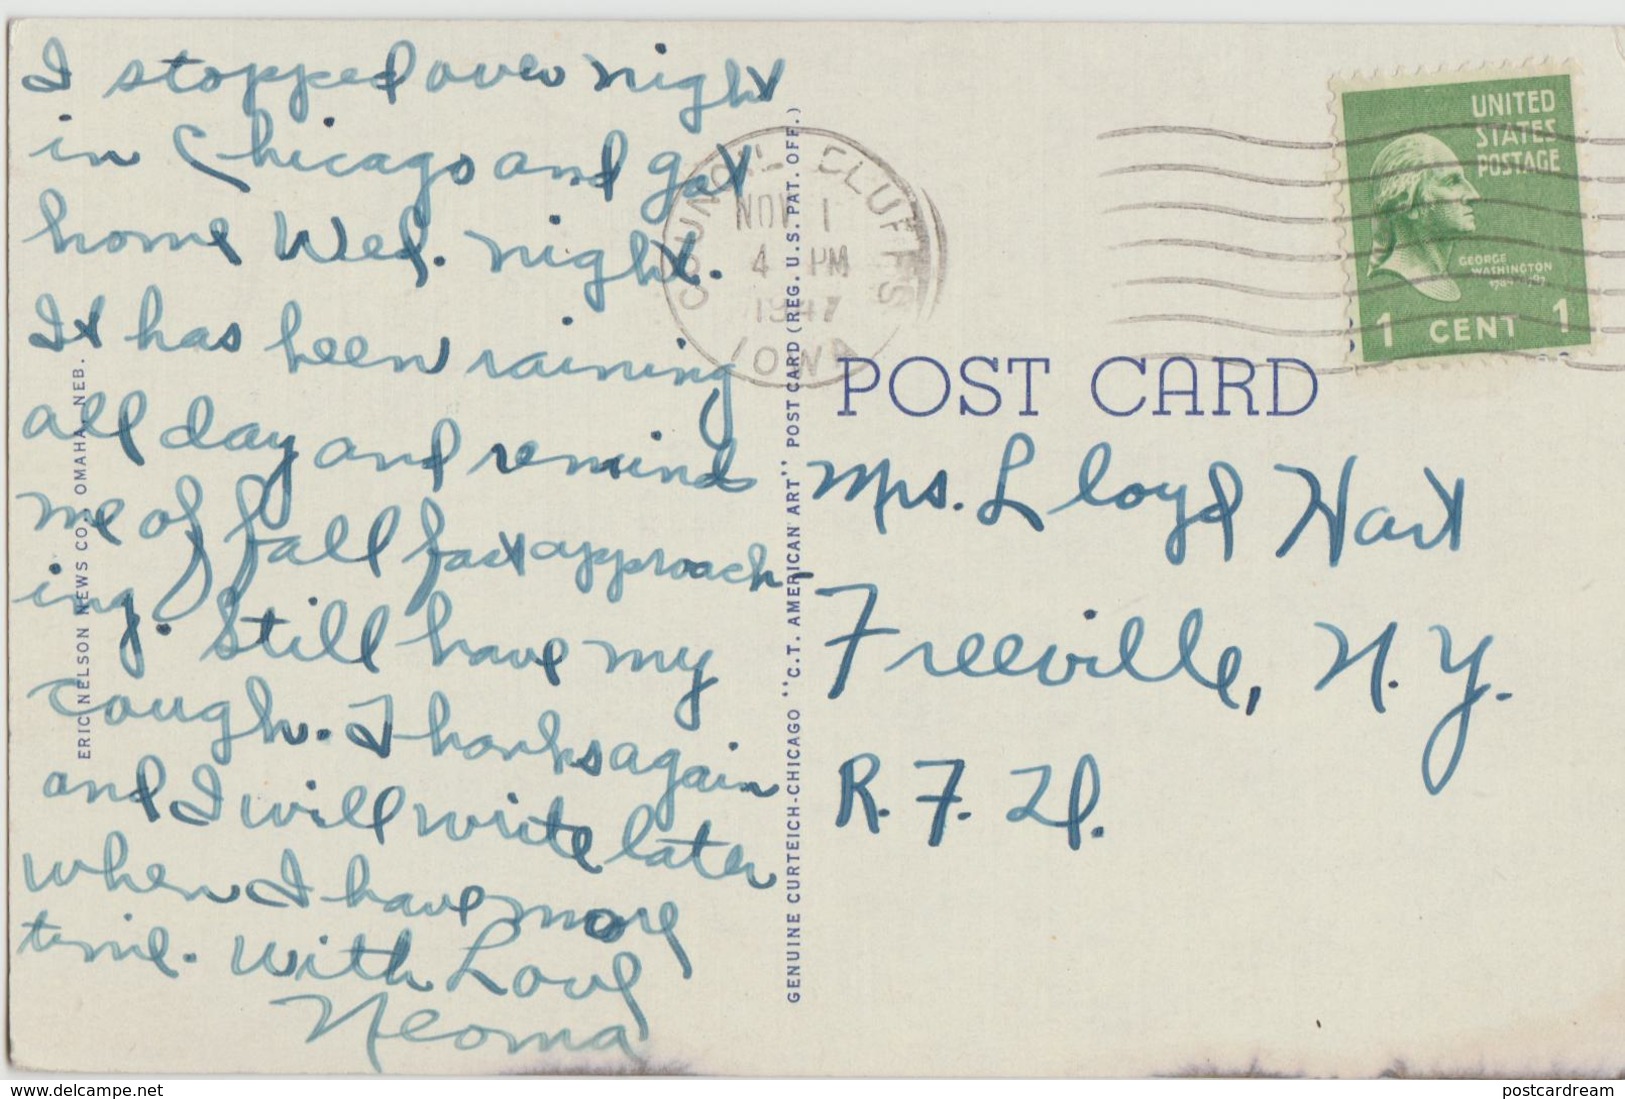 I stopped over night
in Chicago and got
home Wed. night.
It has been raining
all day and remind
me of fall fast approach-
ing. Still have my
cough. Thanks again
and I will write later
when I have more
time. With Love
Neoma
ERIC NELSON NEWS CO., OMAHA, NEB.
GENUINE CURTEICH-CHICAGO "C.T. AMERICAN ART" POST CARD (REG. U.S. PAT. OFF.)
COUNCIL BLUFFS
NOV 1
4 PM
1947
IOWA
UNITED
STATES
POSTAGE
GEORGE
WASHINGTON
1 CENT 1
POST CARD
Mrs. Lloyd Hart
Freeville, N.Y.
R.F.D.
delcampe.net
postcardream